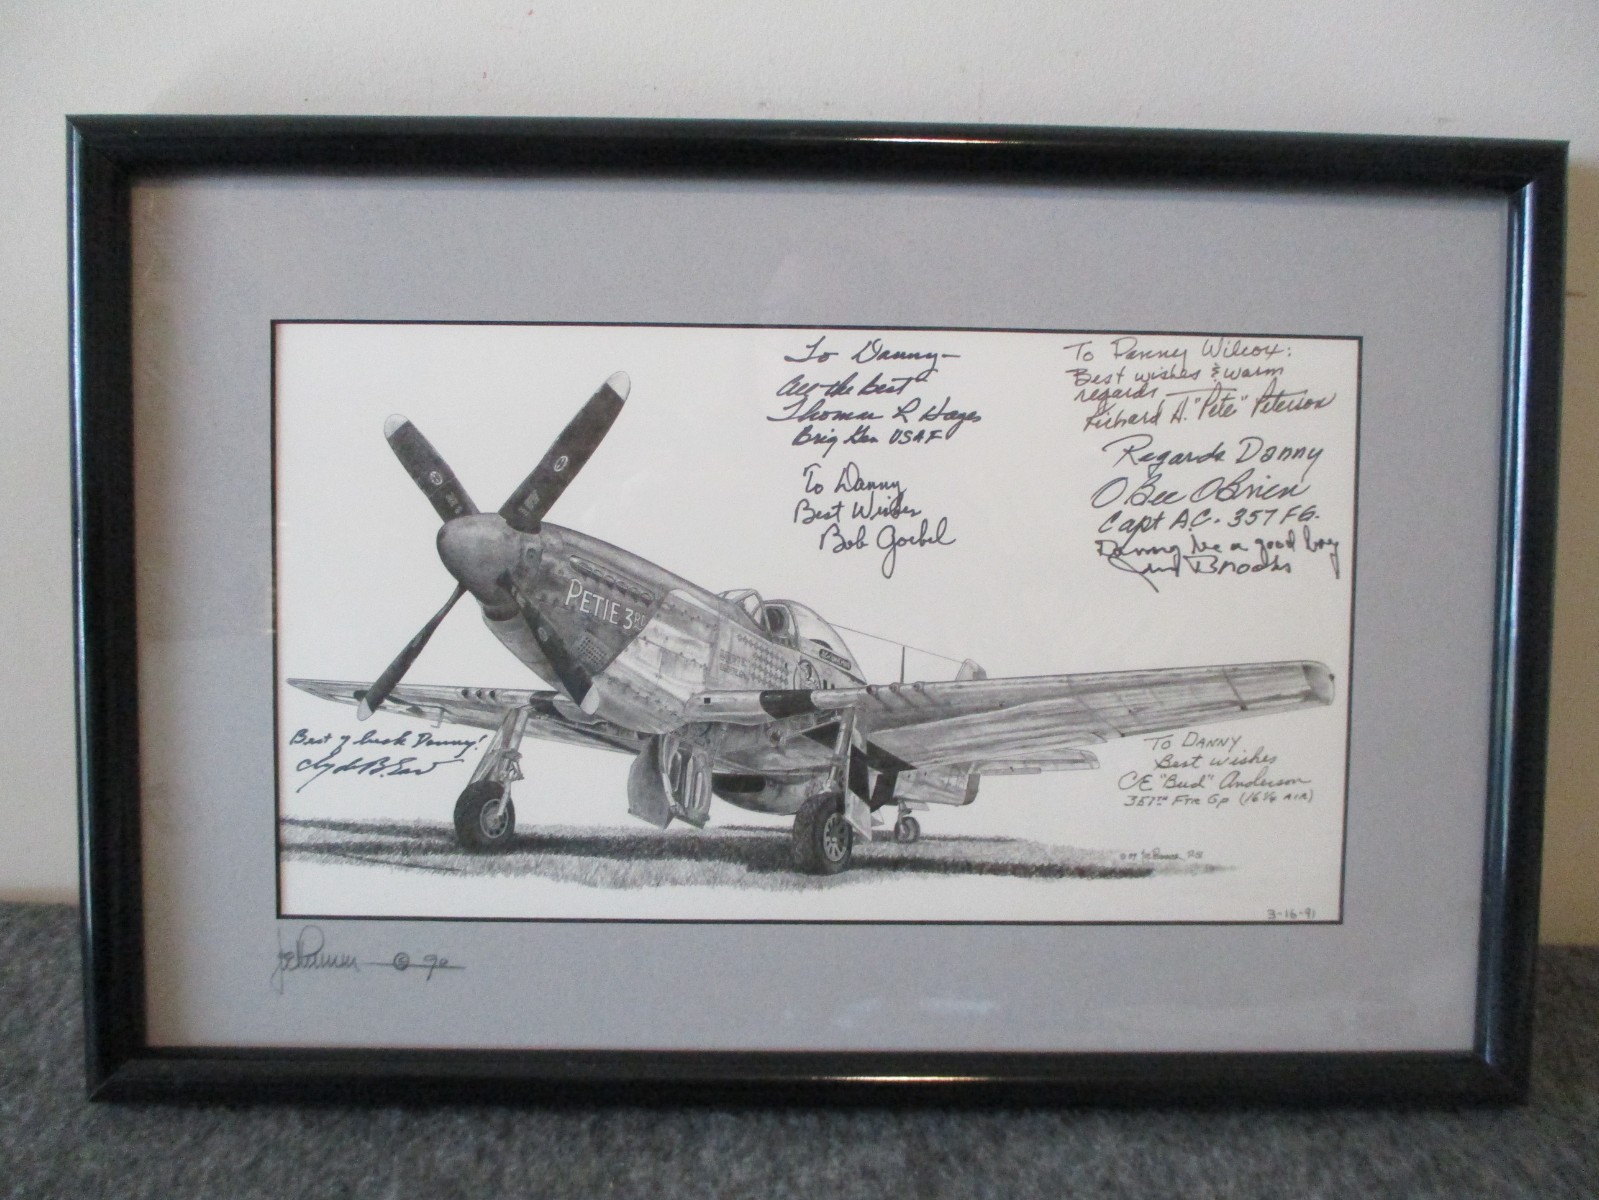 To Danny—
All the best
Thomas L Hayes
Brig Gen USAF
To Danny
Best Wishes
Bob Goebel
To Danny Wilcox:
Best wishes & warm
regards
Richard A. "Pete" Peterson
Regards Danny
O'Bee O'Brien
Capt A.C. 357 FG.
Danny be a good boy
Jim Brooks
PETIE 3RD
Best of luck Danny!
Clyde B. East
To Danny
Best wishes
C E "Bud" Anderson
357th Ftr Gp (16 1/4 AIR)
3-16-91
© 90